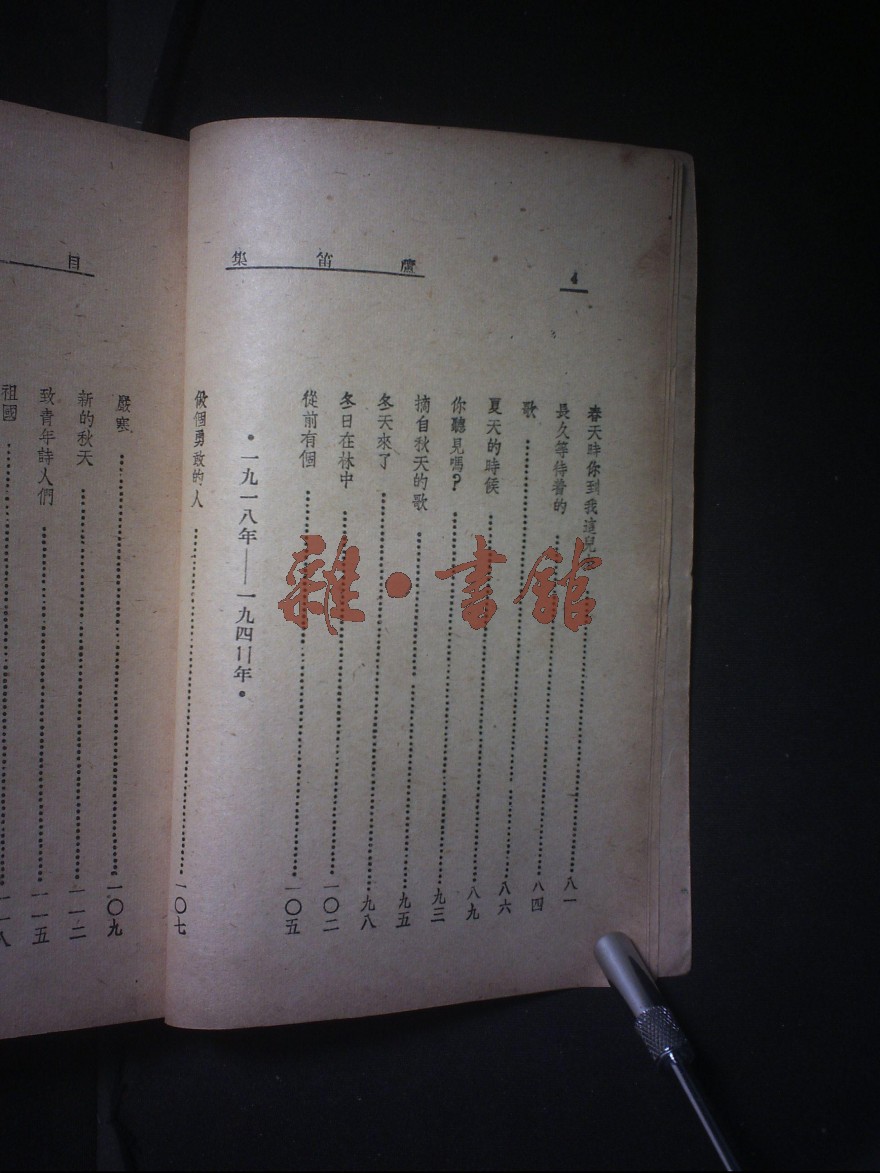 4
蘆笛集
春天時你到我這兒……八一
長久等待着的……八四
歌……八六
夏天的時候……八九
你聽見嗎？……九三
摘自秋天的歌……九五
冬天來了……九八
冬日在林中……一〇二
從前有個……一〇五
•一九一八年——一九四二年•
做個勇敢的人……一〇七
目
嚴寒……一〇九
新的秋天……一一二
致青年詩人們……一一五
祖國……一一八
雜·書館